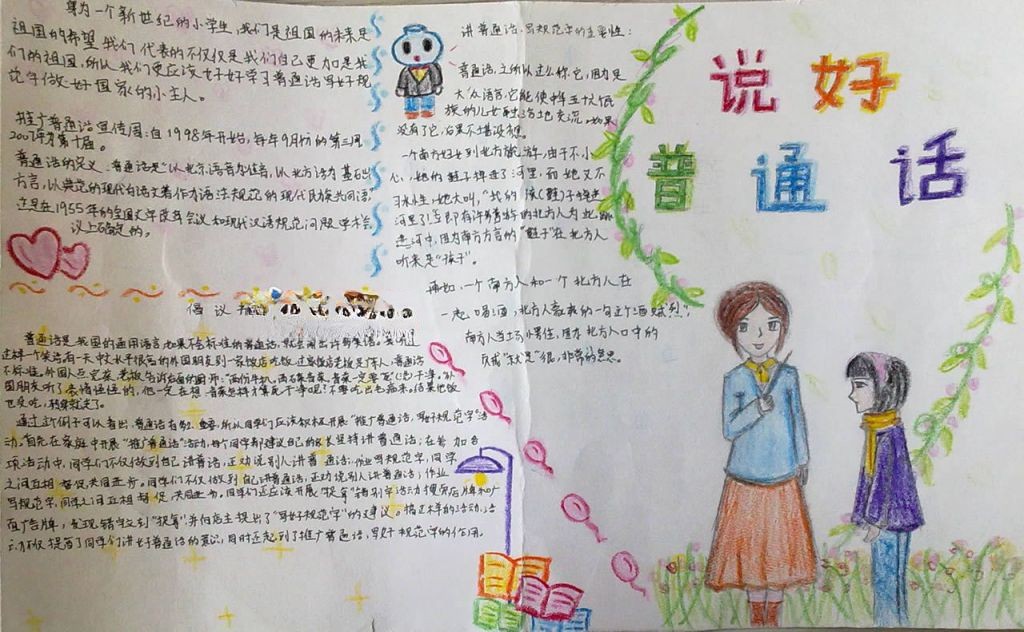 身为一个新世纪的小学生,我们是祖国的未来是
祖国的希望,我们代表的不仅仅是我们自己更加是我
们的祖国,所以我们更应该好好学习普通话写好规
范字做好国家的小主人。
推广普通话宣传周:自1998年开始,每年9月份的第三周
2007年为第十届。
普通话的定义:普通话是"以北京语音为标音,以北方话为基础
方言,以典范的现代白话文著作为语法规范的现代民族共同语"
这是在1955年的全国文字改革会议和现代汉语规范问题学术会
议上确定的。
倡议
普通话是我国的通用语言,如果不会标准的普通话,就会闹出许多笑话。
这样一个笑话:有一天中文水平很高的外国朋友到一家饭店吃饭,这家饭店老板是广东人,普通话
不标准。
国朋友听了
也没吃,转身就走了。
通过这个例子可以看出,普通话有多么重要,所以同学们应该积极开展"推广普通话,写好规范字"活
动。首先在家庭中开展"推广普通话"活动,每个同学都建议自己的家长坚持讲普通话;在参加各
项活动中,同学们不仅做到自己讲普话,还劝说别人讲普通话;作业写规范字,同学
之间互相督促共同进步。同学们不仅做到自己讲普通话,还劝说别人讲普通话,作业
写规范字,同学之间互相督促,共同进步。同学们还应该开展"捉笔"错别字活动搜索店牌和广
面广告牌,发现错字立刻"捉笔"并向店主提出了"写好规范字"的建议。搞这样的活动,活
动不仅提高了同学们讲好普通话的意识,同时还起到了推广普通话,写好规范字的作用。
讲普通话,写规范字的重要性:
普通话,之所以这么称它,因为是
大众语言,它能使得五十六个民
族的儿女融洽地交流,如果
没有了它,后果不堪设想。
一个南方妇女到北方旅游,由于不小
心,她的鞋子掉进了河里,而她又不
习水性,她大叫,"我的孩(鞋)子掉进
河里了!立即有许多善的北方人为此跳
进河中,因为南方方言的"鞋子"在北方人
听来是"孩子"。
再如:一个南方人和一个北方人在
一起,喝酒,北方人豪爽的一句这个酒"贼烈"
南方人当场
"贼"就是"很,非常的意思。
说好
普通话